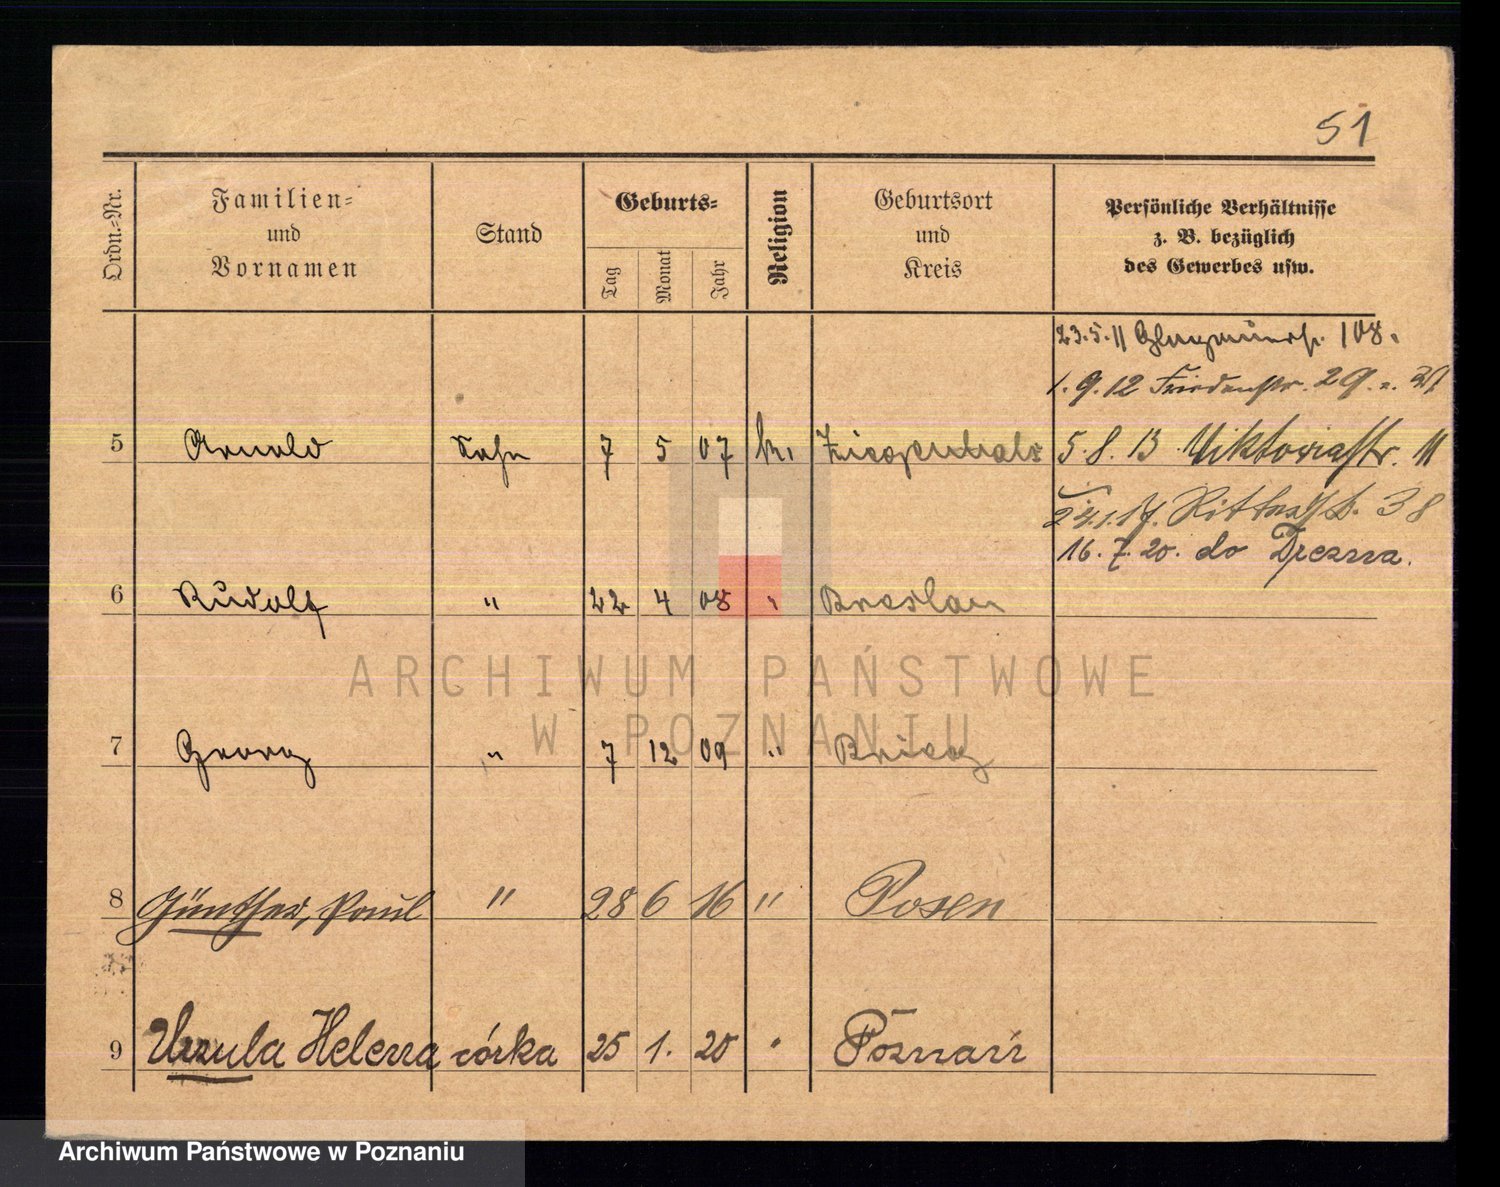 51
Ordn.-Nr.
Familien-
und
Vornamen
Stand
Geburts-
Tag
Monat
Jahr
Religion
Geburtsort
und
Kreis
Persönliche Verhältnisse
z. B. bezüglich
des Gewerbes usw.
23.5.11 108.
1.9.12 Friedenstr. 29
5 Arnold Sohn 7 5 07 k. Ziegenhals 5.8.13 Viktoriastr. 11
24.1.17. Ritterstr. 38
16.7.20. do Drezna.
6 Rudolf " 22 4 08 " Breslau
ARCHIWUM PAŃSTWOWE
W POZNANIU
7 Georg " 7 12 09 " Brieg
8 Günther, Paul " 28 6 16 " Posen
9 Urszula Helena córka 25 1. 20 " Poznań
Archiwum Państwowe w Poznaniu